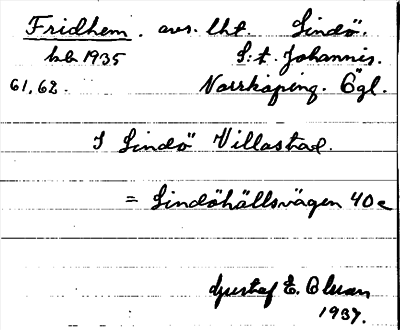 Fridhem. avs. lht. Lindö.
hb 1935 S:t. Johannis.
61,62. Norrköping. Ögl.
I Lindö Villastad.
= Lindöhällsvägen 40 c
Gustaf E. Olsson
1937.